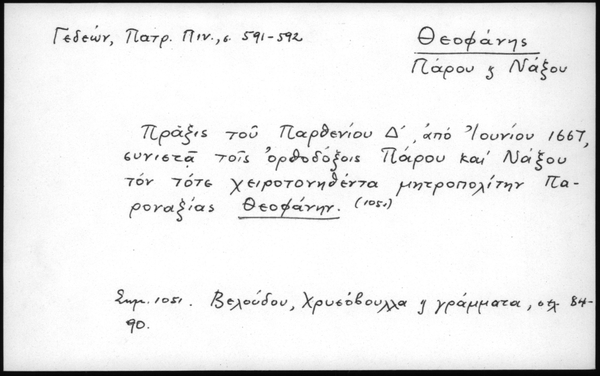 Γεδεών, Πατρ. Πιν., σ. 591-592
Θεοφάνης
Πάρου ϗ Νάξου
Πρᾶξις τοῦ Παρθενίου Δ΄, ἀπό Ἰουνίου 1667,
συνιστᾷ τοῖς ὀρθοδόξοις Πάρου καί Νάξου
τόν τότε χειροτονηθέντα μητροπολίτην Πα-
ροναξίας Θεοφάνην. (1051)
Σημ. 1051. Βελούδου, Χρυσόβουλλα ϗ γράμματα, σελ. 84-
90.